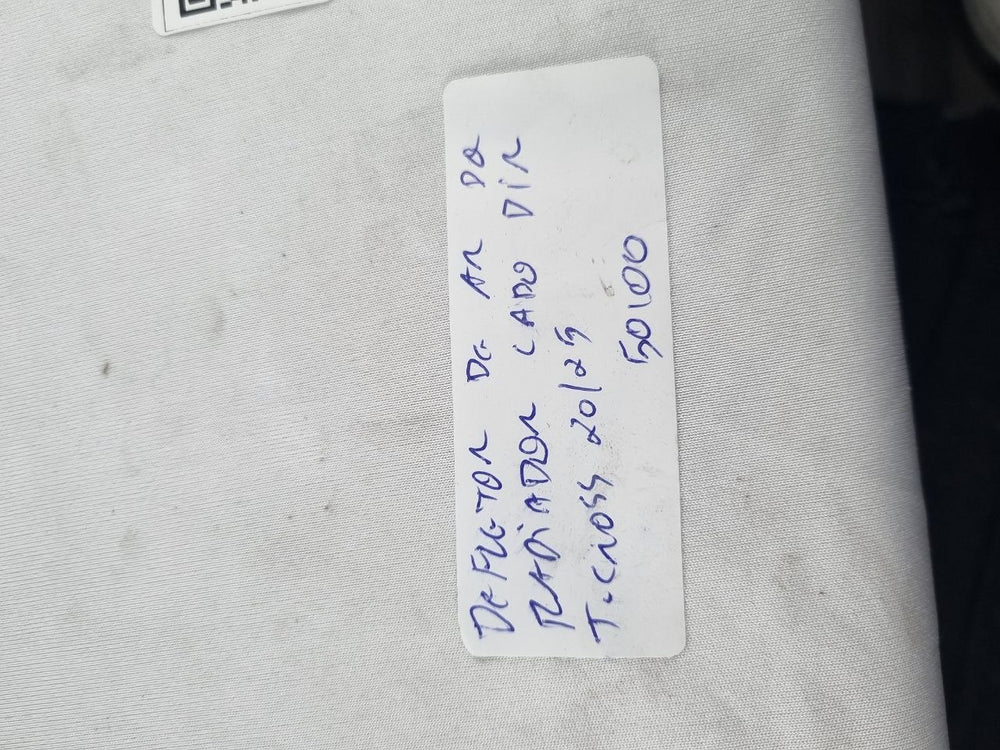 DEFLETOR DE AR DO
RADIADOR LADO DIR
T-CROSS 20/25
50,00